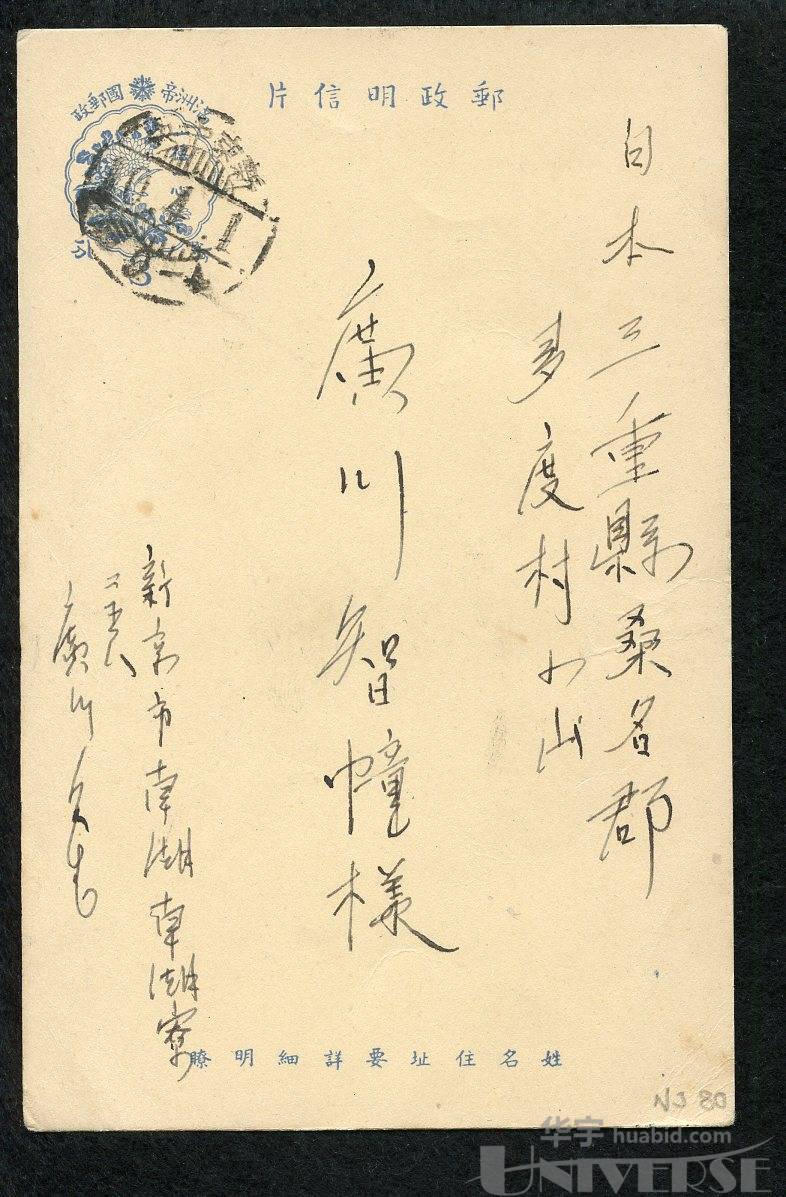 郵政明信片
滿洲帝國郵政
新京
10.4.1
日本三重縣桑名郡
多度村小山
廣川智幢様
新京市南湖南湖寮
廣川
姓名住址要詳細明瞭
NJ 80
华宇 huabid.com
UNIVERSE